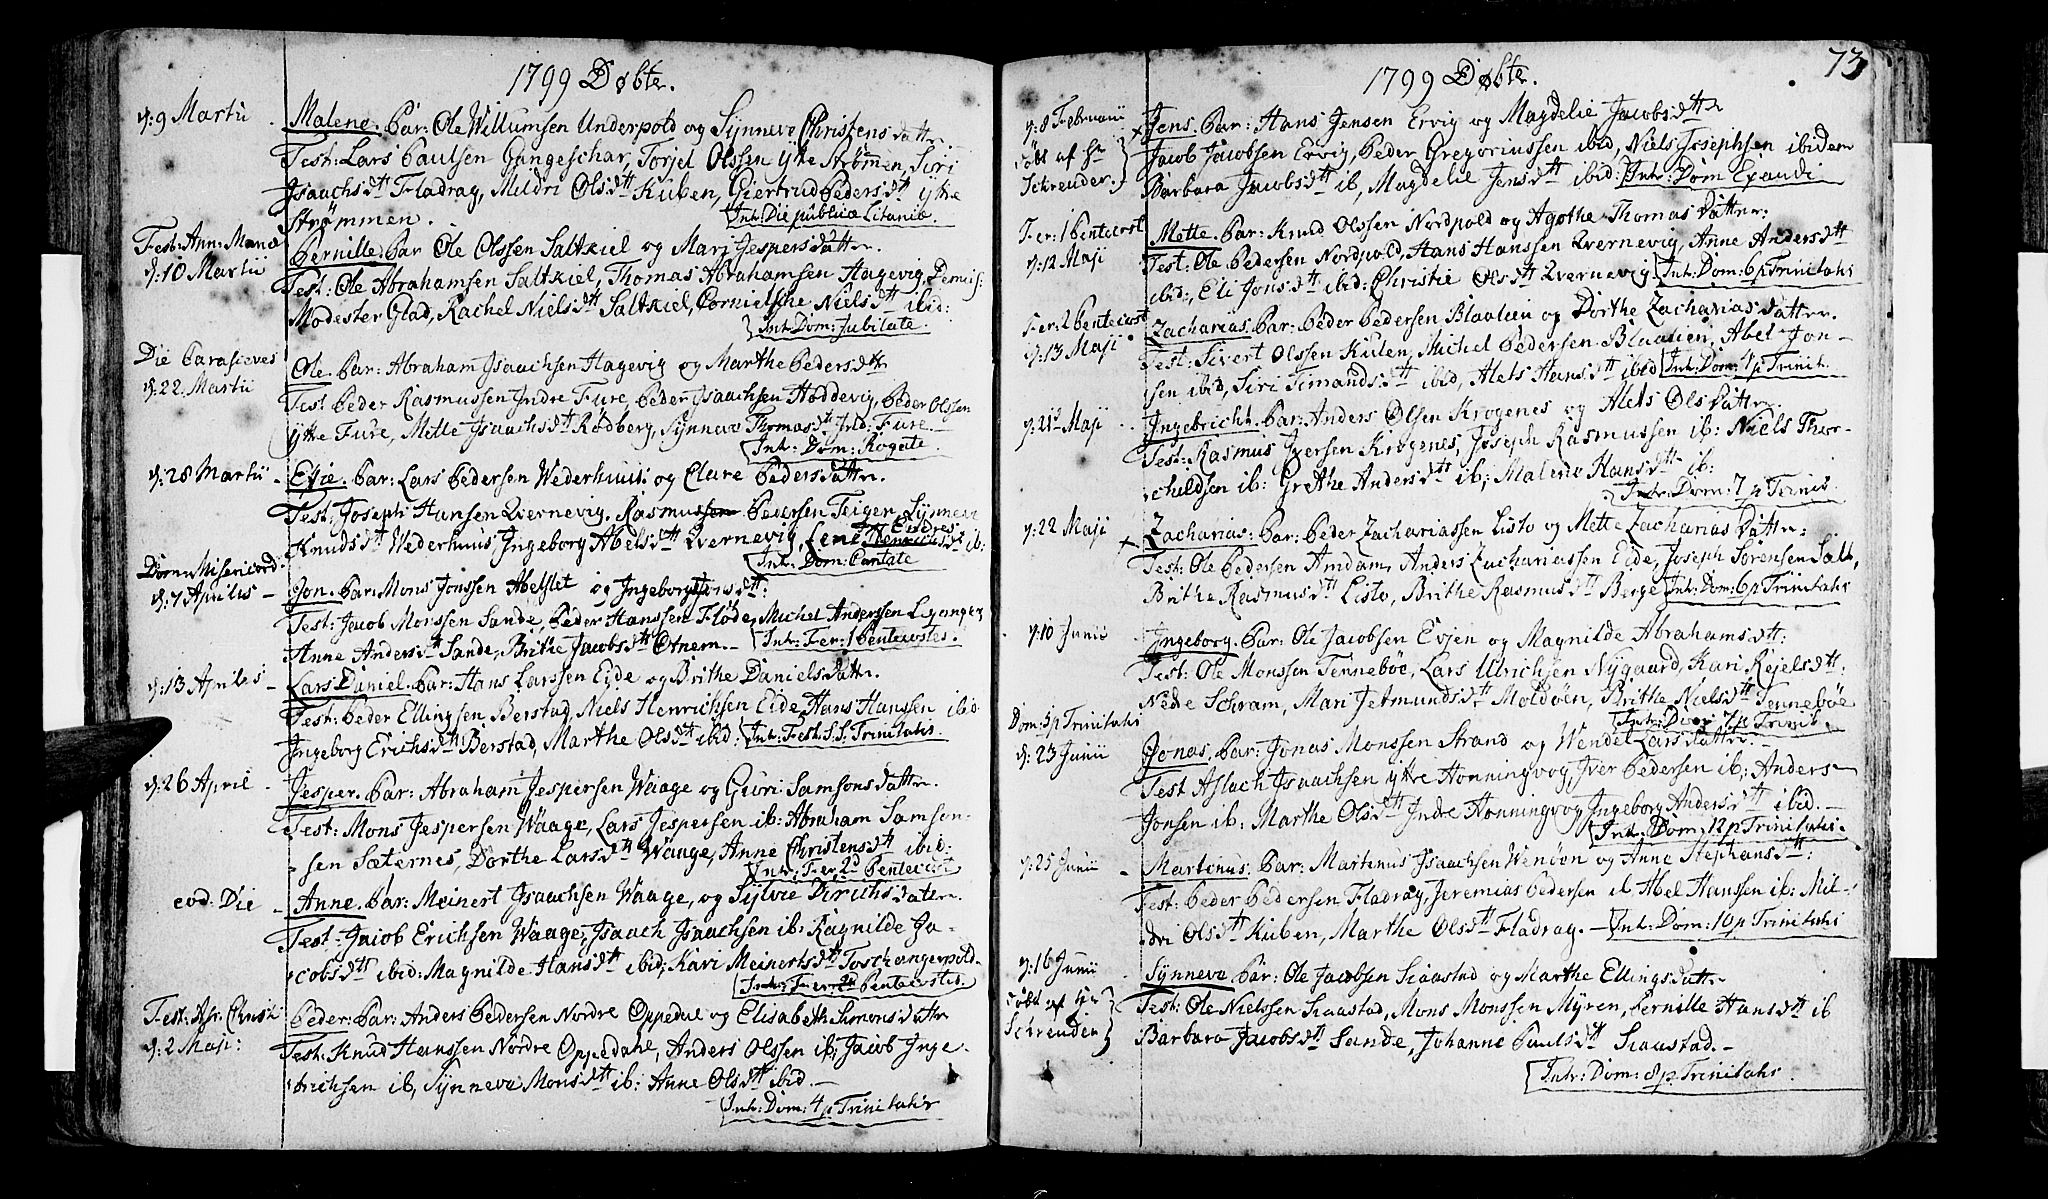 1799 Døbte.
d: 9 Martii
Malene. Par: Ole Willumsen Underpold og Synneve Christensdatter.
Test: Lars Paulsen Gangeschar, Torjel Olssen ytte Strømmen, Siri
Isaachsdtt Fladrag, Mildri Olsdtt Kuben, Giertrud Pedersdtt ytre
Strømmen.
Intr: Die publicæ Litaniæ.
Fest: Ann: Mariæ
d: 10 Martii
Pernille. Par Ole Olssen Saltkiel og Mari Jespersdatter.
Test: Ole Abrahamsen Saltkiel, Thomas Abrahamsen Hagevig, Demis:
Modester Glad, Rachel Nielsdtt Saltkiel, Cornielsche Nielsdtt ibid:
Intr: Dom: Jubilate.
Die Parasceves
d: 22 Martii
Ole. Par: Abraham Isaachsen Hagevig og Marthe Pedersdtr
Test Peder Rasmussen Indre Fure, Peder Isaachsen Høddevig, Peder Olssen
ytre Fure, Mette Isaachsdtt Rødberg, Synneve Thomasdtt Ind: Fure.
Intr: Dom: Rogate.
d: 28 Martii
Elsie. Par: Lars Pedersen Wederhuus og Clare Pedersdatter.
Test: Joseph Hansen Qvernevig, Rasmussen Pedersen Teigen, Synneve
Knudsdtt Wederhuus Ingeborg Abelsdtt Qvernevig, Lene Henrichsdtt ib:
Intr: Dom: Cantate
Dom: Misericord:
d: 7 Aprilis
Jon. Par: Mons Jonssen Abelset og Ingeborg Jonsdtt:
Test: Jacob Monssen Sande, Peder Hanssen Flöde, Michel Anderssen Lyonges
Anne Andersdtt Sande, Brithe Jacobsdtt Otnem.
Intr: Fer: 1 Pentecostes.
d: 13 Aprilis
Lars Daniel. Par: Hans Larssen Eide og Brithe Danielsdatter.
Test: Peder Ellingsen Berstad, Niels Henrichsen Eide, Hans Hanssen ibid
Ingeborg Erichsdtt Berstad, Marthe Olsdtt ibid:
Intr: Fest: S.S. Trinitatis.
d: 26 April
Jesper. Par: Abraham Jespersen Waage og Guri Samsonsdatter.
Test: Mons Jespersen Waage, Lars Jespersen ib: Abraham Samson-
sen Sæternes, Dorthe Larsdtt Waage, Anne Christensdtt ibid:
Intr: Fer: 2d Pentecost
eod: Die
Anne. Par: Meinert Isaachsen Waage, og Sylvie Dirichsdatter
Test: Jacob Erichsen Waage, Isaach Isaachsen ib: Ragnilde Ja-
cobsdtt ibid: Magnilde Hansdtt ibid; Kari Meinertsdtt Toschangerpold
Intr: Fer: 2d Pentecostes.
Fest: Asc: Christi
d: 2 Maji:
Peder. Par: Anders Pedersen Nordre Oppedal og Elisabeth Simonsdatter
Test: Knud Hanssen Nordre Oppedahl, Anders Olssen ib; Jacob Inge-
brichsen ib, Synneve Monsdtt ib: Anne Olsdtt ibid.
Intr: Dom: 4 p Trinitatis
73
1799 Døbte.
d: 8 Februarii
døbt af Hr
Schreuder.
Jens. Par: Hans Jensen Ervig og Magdelie Jacobsdtr
Jacob Jacobsen Ervig, Peder Gregoriussen ibid, Niels Josephsen ibidem
Barbara Jacobsdtt ib, Magdelie Jensdtt ibid: Intr: Dom Exaudi
Fer: 1 Pentecost
d: 12 Maji
Mette. Par: Knud Olssen Nordpold og Agothe Thomasdatter:
Test: Ole Pedersen Nordpold, Hans Hanssen Qvernevig, Anne Andersdtt
ibid:, Eli Jonsdtt ibid: Christie Olsdtt Qvernevig. Intr: Dom: 6 p Trinitatis
Fer: 2 Pentecost
d: 13 Maji
Zacharias. Par: Peder Pedersen Blaalien og Dorthe Zachariasdatter.
Test: Sivert Olssen Kulen, Michel Pedersen Blaalien, Abel Jon-
sen ibid, Siri Simandsdtt ibid, Alets Hansdtt ibid Intr: Dom: 4 p Trinit.
d: 21d Maji
Ingebricht. Par: Anders Olsen Krogenes og Alets Olsdatter.
Test: Rasmus Iversen Krogenes, Joseph Rasmussen ib: Niels Thor-
childsen ib: Grethe Andersdtt ib; Malene Hansdtt ib:
Intr: Dom: 7 p Trinis.
d: 22 Maji
Zacharias. Par: Peder Zachariassen Listo og Mette Zachariasdatter:
Test: Ole Pedersen Amdam, Anders Zachariassen Eide, Joseph Sørensen Salt,
Brithe Rasmusdtt Listo, Brithe Rasmusdtt Berge Intr: Dom: 6 p Trinitatis
d: 10 Junii
Ingeborg. Par: Ole Jacobsen Evjen og Magnilde Abrahamsdtt:
Test: Ole Monssen Tennebøe, Lars Ulrichsen Nygaard, Kari Rejelsdtt:
Nede Schram, Mari Jetmundsdtt Moldøen, Brithe Nielsdtt Tennebøe
Intr: Dom: 7 p Trinit.
Dom: 5 p Trinitatis
d: 23 Junii
Jonas. Par: Jonas Monssen Strand og Wendel Larsdatter.
Test Aslach Isaachsen ytre Honningvog, Iver Pedersen ib; Anders
Jonsen ib: Marthe Olsdtt Indre Honningvog Ingeborg Andersdtt ibid.
Intr: Dom: 12 p Trinitatis.
d: 25 Junii
Martinus. Par: Martinus Isaachsen Wenøen og Anne Stephansdtt:
Test: Peder Pedersen Fladrag, Jeremias Pedersen ib Abel Hanssen ib: Mil-
dri Olsdtt Kuben, Marthe Olsdtt Fladrag. Intr: Dom: 10 p Trinitatis
d: 16 Junii
døbt af Hr
Schreuder
Synneve Par: Ole Jacobsen Scaastad og Marthe Ellingsdatter
Test: Ole Nielssen Scaastad, Mons Monssen Myren, Pernille Hansdtt ib
Barbara Jacobsdtt Sande, Johanne Paulsdtt Scaastad.
Intr: Dom: 8 p Trinitatis.